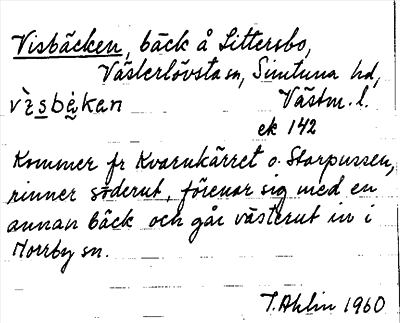 Visbäcken, bäck å Littersbo,
Västerlövsta sn, Simtuna hd,
Västm. l.
vìsbékan
ek 142
Kommer fr Kvarnkärret o. Storpussen,
rinner söderut, förenar sig med en
annan bäck och går västerut in i
Morrby sn.
T. Ahlin 1960